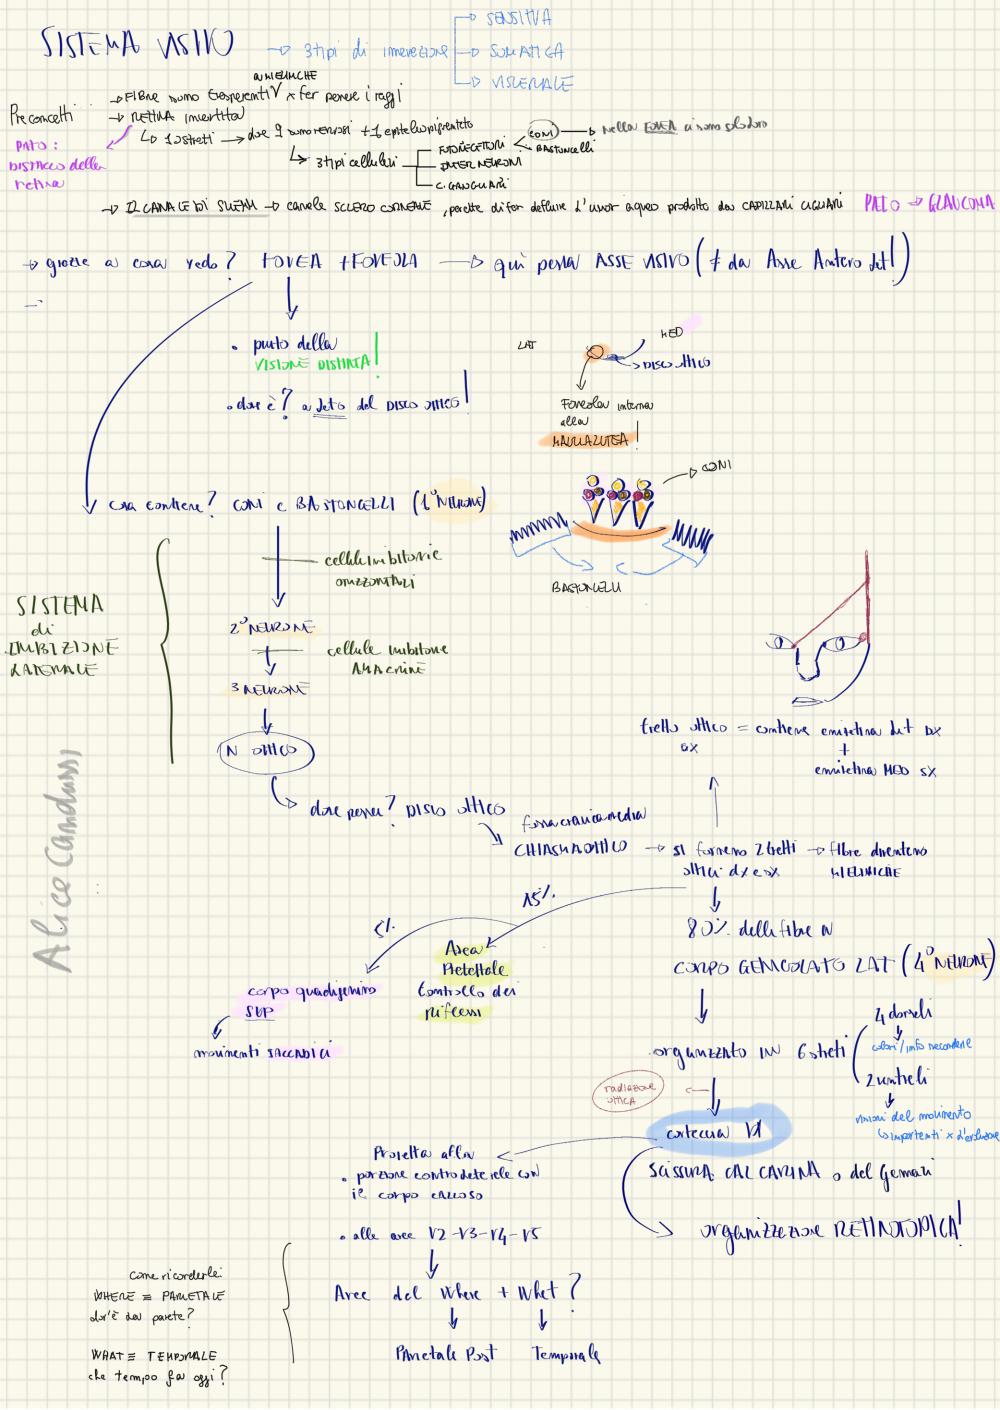 SISTEMA VISIVO → 3 tipi di innervazione
→ SENSITIVA
→ SOMATICA
→ VISCERALE
Preconcetti
→ FIBRE sono trasparenti x far passare i raggi
AMIELINICHE
→ RETINA invertita
↳ 10 strati → dove 9 sono nervosi + 1 epitelio pigmentato
↳ 3 tipi cellulari
FOTORECETTORI
CONI → nella FOVEA ci sono solo loro
BASTONCELLI
INTER NEURONI
C. GANGLIARI
PATO:
DISTACCO della
retina
→ IL CANALE DI SLEMM → canale SCLERO CORNEALE, permette di far defluire l'umor aqueo prodotto dai CAPILLARI CIGLIARI PATO → GLAUCOMA
→ grazie a cosa vedo? FOVEA + FOVEOLA → qui passa ASSE VISIVO (≠ da Asse Antero Post!)
• punto della
VISIONE DISTINTA!
• dov'è? a lato del DISCO OTTICO!
LAT
MED
→ DISCO OTTICO
Foveola interna
alla
MACULA LUTEA!
cosa contiene? CONI e BASTONCELLI (1° NEURONE)
→ CONI
BASTONCELLI
cellule inibitorie
orizzontali
2° NEURONE
cellule inibitorie
AMACRINE
3 NEURONE
N OTTICO
SISTEMA
di
INIBIZIONE
LATERALE
tratto ottico = contiene emiretina lat DX
DX
+
emiretina MED SX
dove passa? DISCO OTTICO
fossa cranica media
CHIASMA OTTICO → si formano 2 tratti → fibre diventano
ottici dx e sx MIELINICHE
Alice Candussi
15%
5%
80% delle fibre
Area
Pretettale
Controllo dei
riflessi
CORPO GENICOLATO LAT (4° NEURONE)
corpo quadrigemino
SUP
movimenti SACCADICI
organizzato IN 6 strati
4 dorsali
colori / info secondarie
2 ventrali
visioni del movimento
importanti x l'evoluzione
radiazione
OTTICA
corteccia V1
SCISSURA CALCARINA o del Gennari
Proietta alla
• porzione controlaterale con
il corpo calloso
• alle aree V2-V3-V4-V5
organizzazione RETINOTOPICA!
Aree del Where + What?
Parietale Post Temporale
come ricordarle
WHERE = PARIETALE
dov'è la parete?
WHAT = TEMPORALE
che tempo fa oggi?